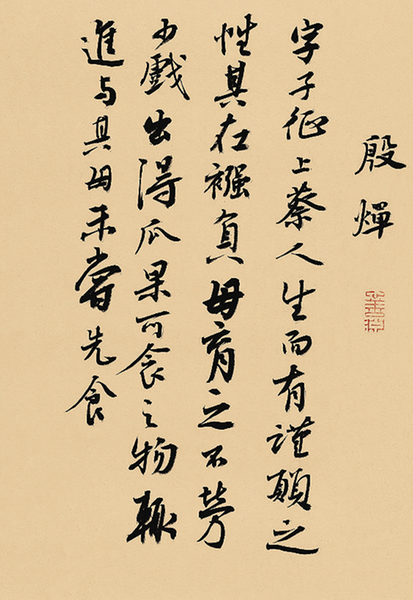 殷燀
字子征上蔡人生而有謹願之
性其在襁負母育之不勞
少戲出得瓜果可食之物輒
進与其母未嘗先食